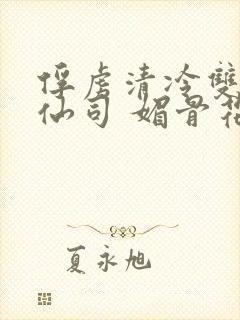 俘虏清冷雙
仙司 媚骨花
夏永旭